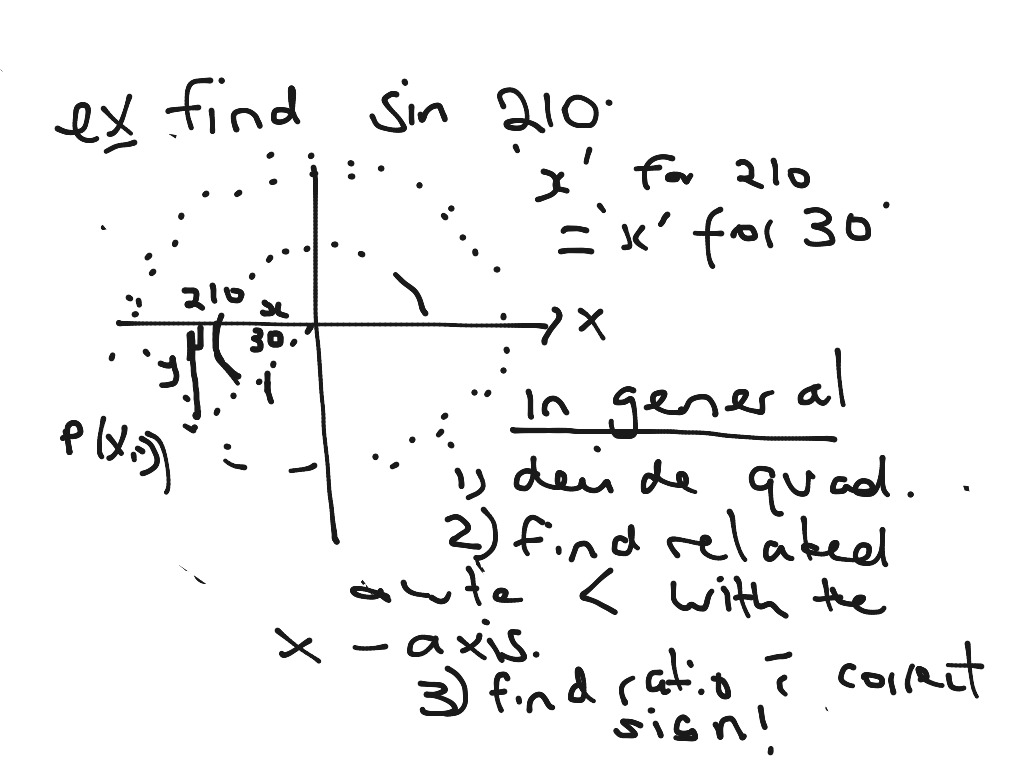 ex find sin 210°
'x' for 210
= 'x' for 30°
210 x
30
y 1
x
P(x,y)
in general
1) decide quad.
2) find related
acute < with the
x-axis.
3) find ratio c̄ correct
sign!